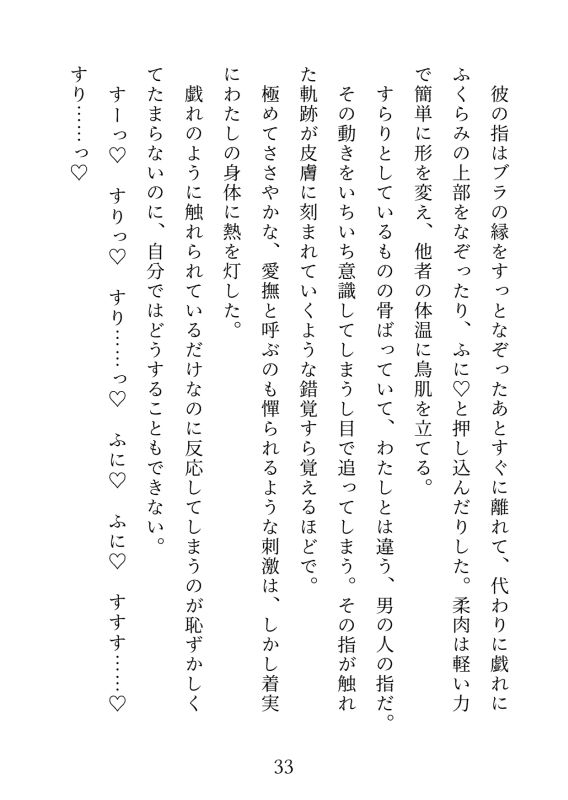 彼の指はブラの縁をすっとなぞったあとすぐに離れて、代わりに戯れに
ふくらみの上部をなぞったり、ふに♡と押し込んだりした。柔肉は軽い力
で簡単に形を変え、他者の体温に鳥肌を立てる。
すらりとしているものの骨ばっていて、わたしとは違う、男の人の指だ。
その動きをいちいち意識してしまうし目で追ってしまう。その指が触れ
た軌跡が皮膚に刻まれていくような錯覚すら覚えるほどで。
極めてささやかな、愛撫と呼ぶのも憚られるような刺激は、しかし着実
にわたしの身体に熱を灯した。
戯れのように触れられているだけなのに反応してしまうのが恥ずかしく
てたまらないのに、自分ではどうすることもできない。
すーっ♡　すりっ♡　すり……っ♡　ふに♡　ふに♡　すすす……♡
すり……っ♡
33